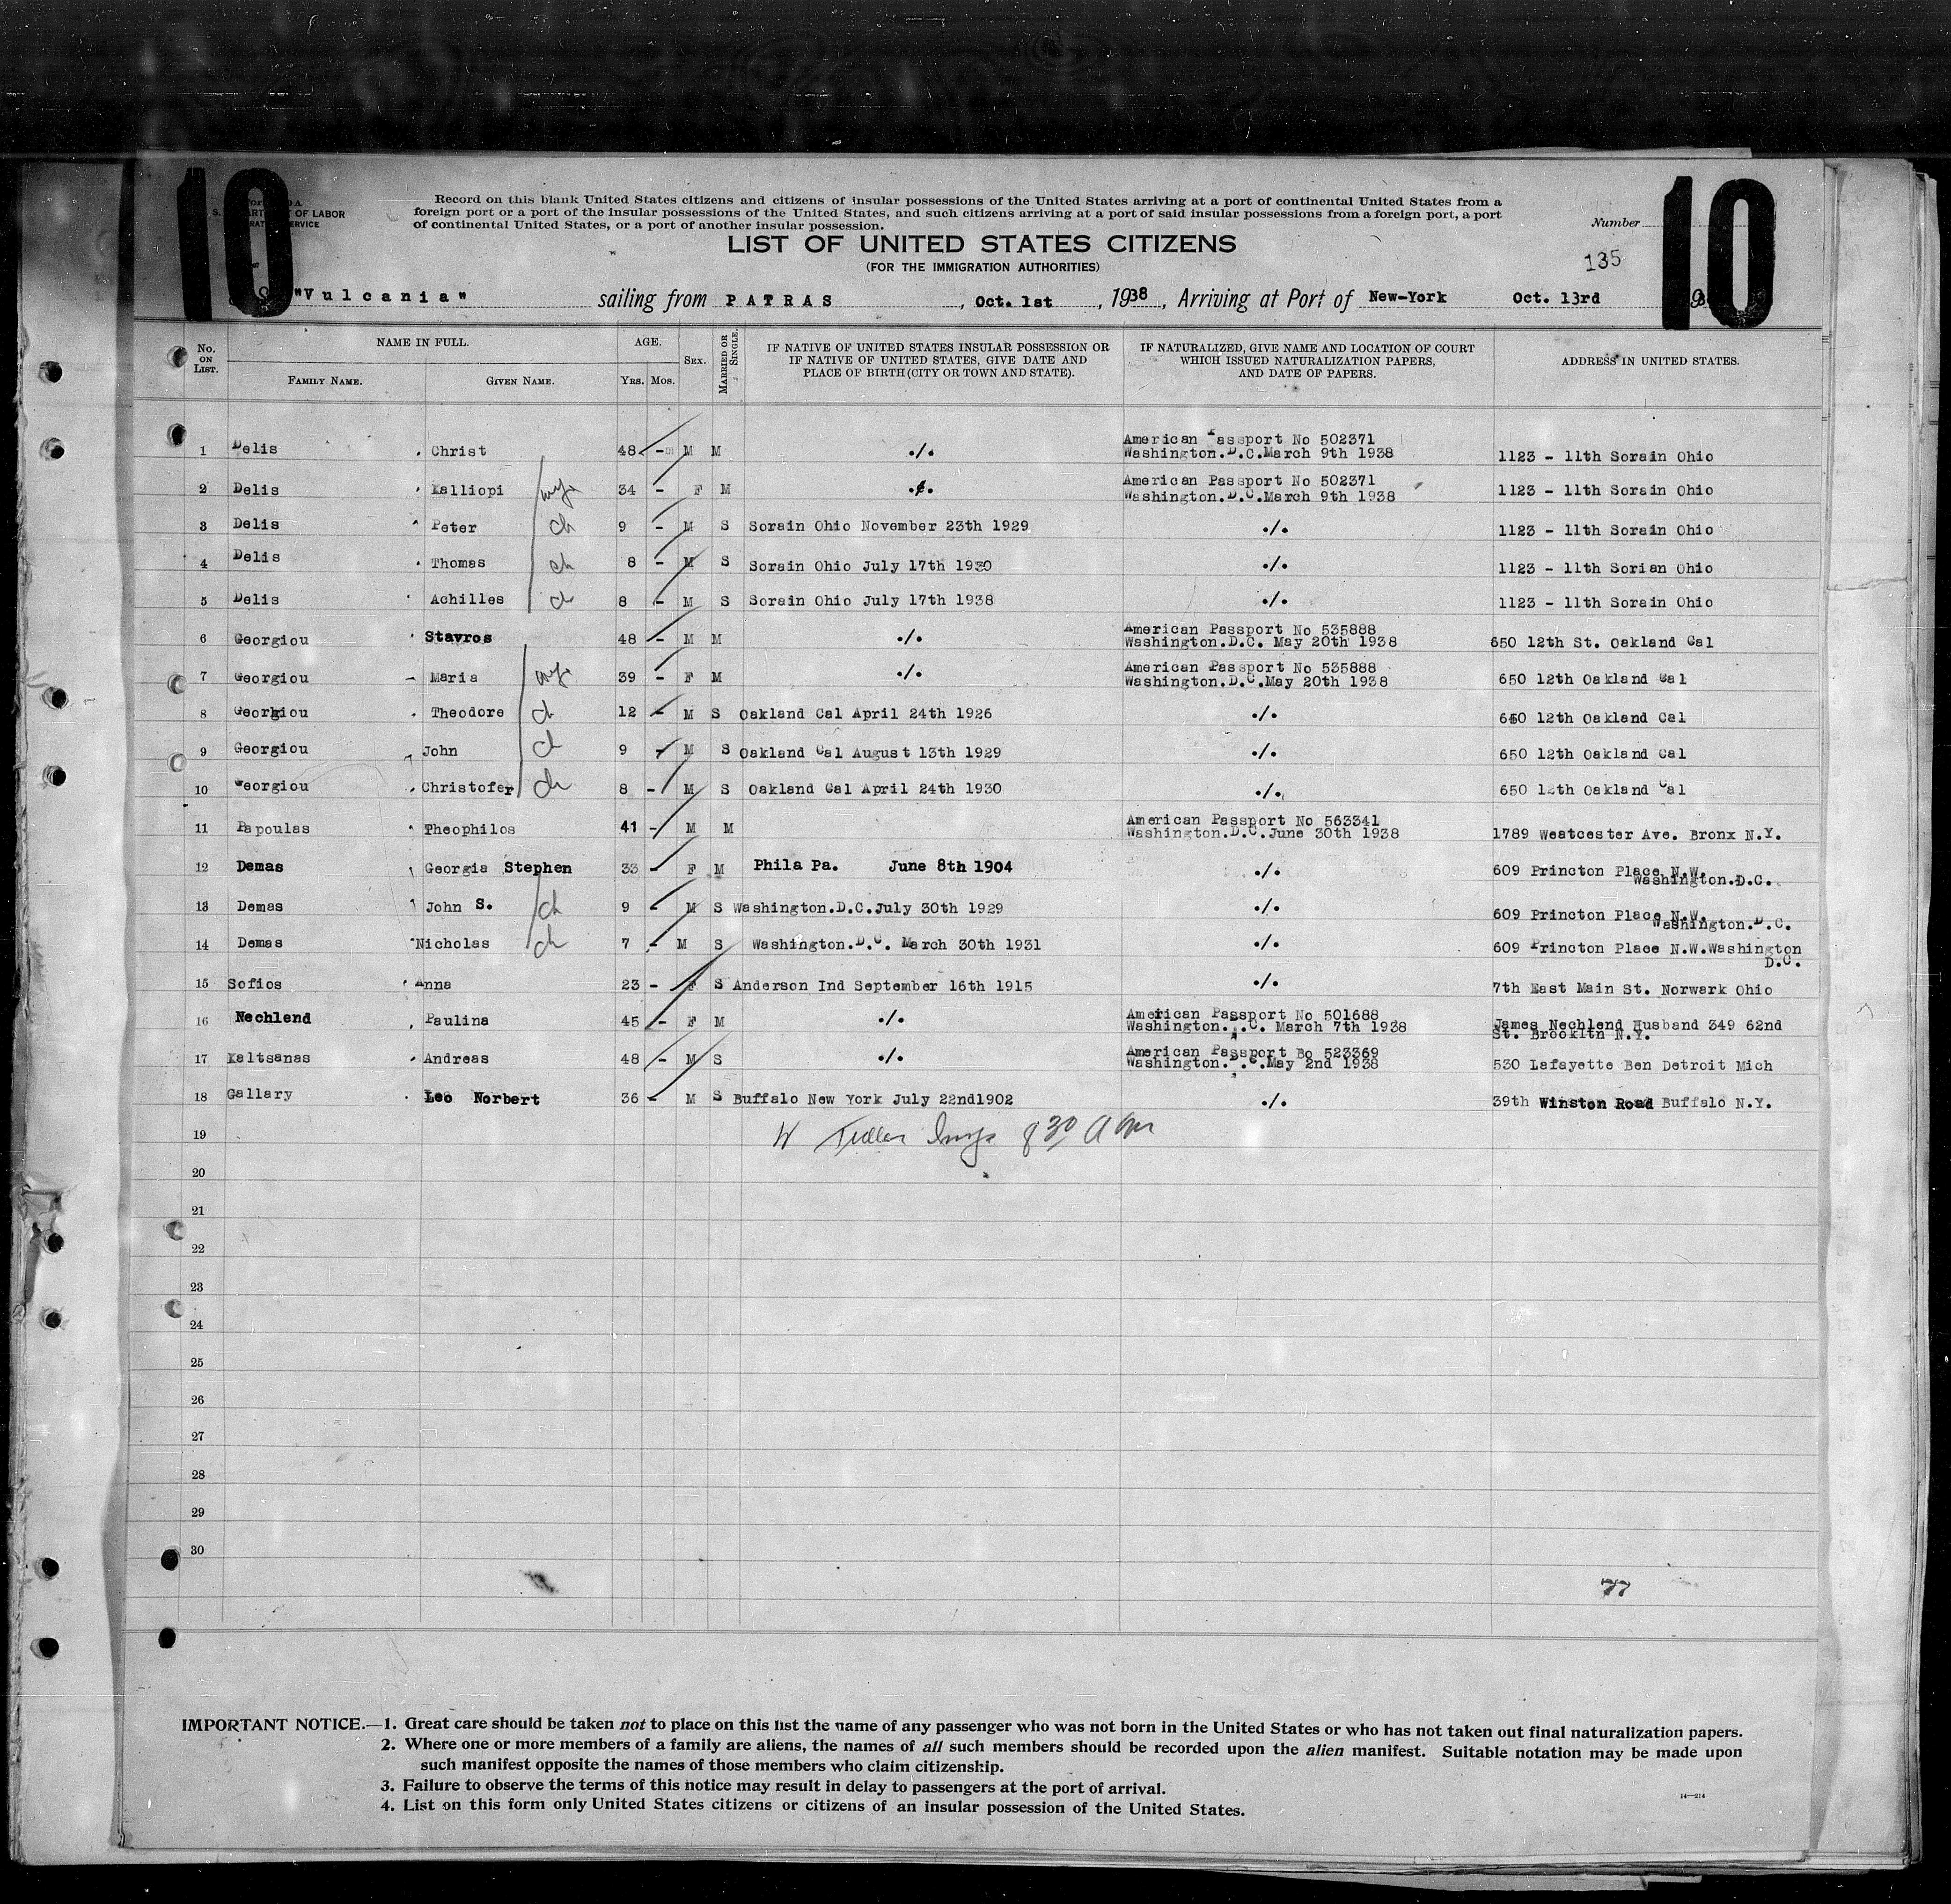 10
10
DEPARTMENT OF LABOR
SERVICE
Record on this blank United States citizens and citizens of insular possessions of the United States arriving at a port of continental United States from a
foreign port or a port of the insular possessions of the United States, and such citizens arriving at a port of said insular possessions from a foreign port, a port
of continental United States, or a port of another insular possession.
Number
LIST OF UNITED STATES CITIZENS
(FOR THE IMMIGRATION AUTHORITIES)
135
S "Vulcania" sailing from PATRAS, Oct. 1st, 1938, Arriving at Port of New-York Oct. 13rd
No. ON LIST.
NAME IN FULL.
FAMILY NAME. GIVEN NAME.
AGE.
YRS. MOS.
SEX.
MARRIED OR SINGLE.
IF NATIVE OF UNITED STATES INSULAR POSSESSION OR
IF NATIVE OF UNITED STATES, GIVE DATE AND
PLACE OF BIRTH (CITY OR TOWN AND STATE).
IF NATURALIZED, GIVE NAME AND LOCATION OF COURT
WHICH ISSUED NATURALIZATION PAPERS,
AND DATE OF PAPERS.
ADDRESS IN UNITED STATES.
1 Delis Christ 48 - M M ./. American Passport No 502371
Washington.D.C.March 9th 1938 1123 - 11th Sorain Ohio
2 Delis Kalliopi wf 34 - F M ./. American Passport No 502371
Washington.D.C.March 9th 1938 1123 - 11th Sorain Ohio
3 Delis Peter ch 9 - M S Sorain Ohio November 23th 1929 ./. 1123 - 11th Sorain Ohio
4 Delis Thomas ch 8 - M S Sorain Ohio July 17th 1930 ./. 1123 - 11th Sorian Ohio
5 Delis Achilles ch 8 - M S Sorain Ohio July 17th 1938 ./. 1123 - 11th Sorain Ohio
6 Georgiou Stavros 48 - M M ./. American Passport No 535888
Washington.D.C. May 20th 1938 650 12th St. Oakland Cal
7 Georgiou Maria wf 39 - F M ./. American Passport No 535888
Washington.D.C.May 20th 1938 650 12th Oakland Cal
8 Georgiou Theodore ch 12 - M S Oakland Cal April 24th 1926 ./. 650 12th Oakland Cal
9 Georgiou John ch 9 - M S Oakland Cal August 13th 1929 ./. 650 12th Oakland Cal
10 Georgiou Christofer ch 8 - M S Oakland Cal April 24th 1930 ./. 650 12th Oakland Cal
11 Papoulas Theophilos 41 - M M American Passport No 563341
Washington.D.C.June 30th 1938 1789 Weatcester Ave. Bronx N.Y.
12 Demas Georgia Stephen 33 - F M Phila Pa. June 8th 1904 ./. 609 Princton Place N.W.
Washington.D.C.
13 Demas John S. ch 9 - M S Washington.D.C.July 30th 1929 ./. 609 Princton Place N.W.
Washington.D.C.
14 Demas Nicholas ch 7 - M S Washington.D.C. March 30th 1931 ./. 609 Princton Place N.W.Washington
D.C.
15 Sofios Anna 23 - F S Anderson Ind September 16th 1915 ./. 7th East Main St. Norwark Ohio
16 Nechlend Paulina 45 - F M ./. American Passport No 501688
Washington. .C. March 7th 1938 James Nechlend Husband 349 62nd
St. Brookltn N.Y.
17 Kaltsanas Andreas 48 - M S ./. American Passport Bo 523369
Washington.D.C.May 2nd 1938 530 Lafayette Ben Detroit Mich
18 Gallary Leo Norbert 36 - M S Buffalo New York July 22nd1902 ./. 39th Winston Road Buffalo N.Y.
19
20
21
22
23
24
25
26
27
28
29
30
77
IMPORTANT NOTICE.—1. Great care should be taken not to place on this list the name of any passenger who was not born in the United States or who has not taken out final naturalization papers.
2. Where one or more members of a family are aliens, the names of all such members should be recorded upon the alien manifest. Suitable notation may be made upon
such manifest opposite the names of those members who claim citizenship.
3. Failure to observe the terms of this notice may result in delay to passengers at the port of arrival.
4. List on this form only United States citizens or citizens of an insular possession of the United States.
14—214